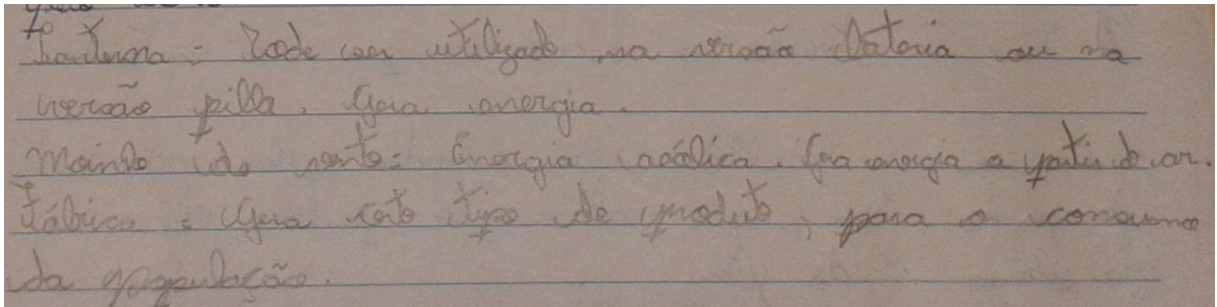 Lanterna = Pode ser utilizado na versão bateria ou na
versão pilha. Gera energia.
Moinho de vento = Energia eólica. Gera energia a partir do ar.
Fábrica = Gera certo tipo de produto, para o consumo
da população.